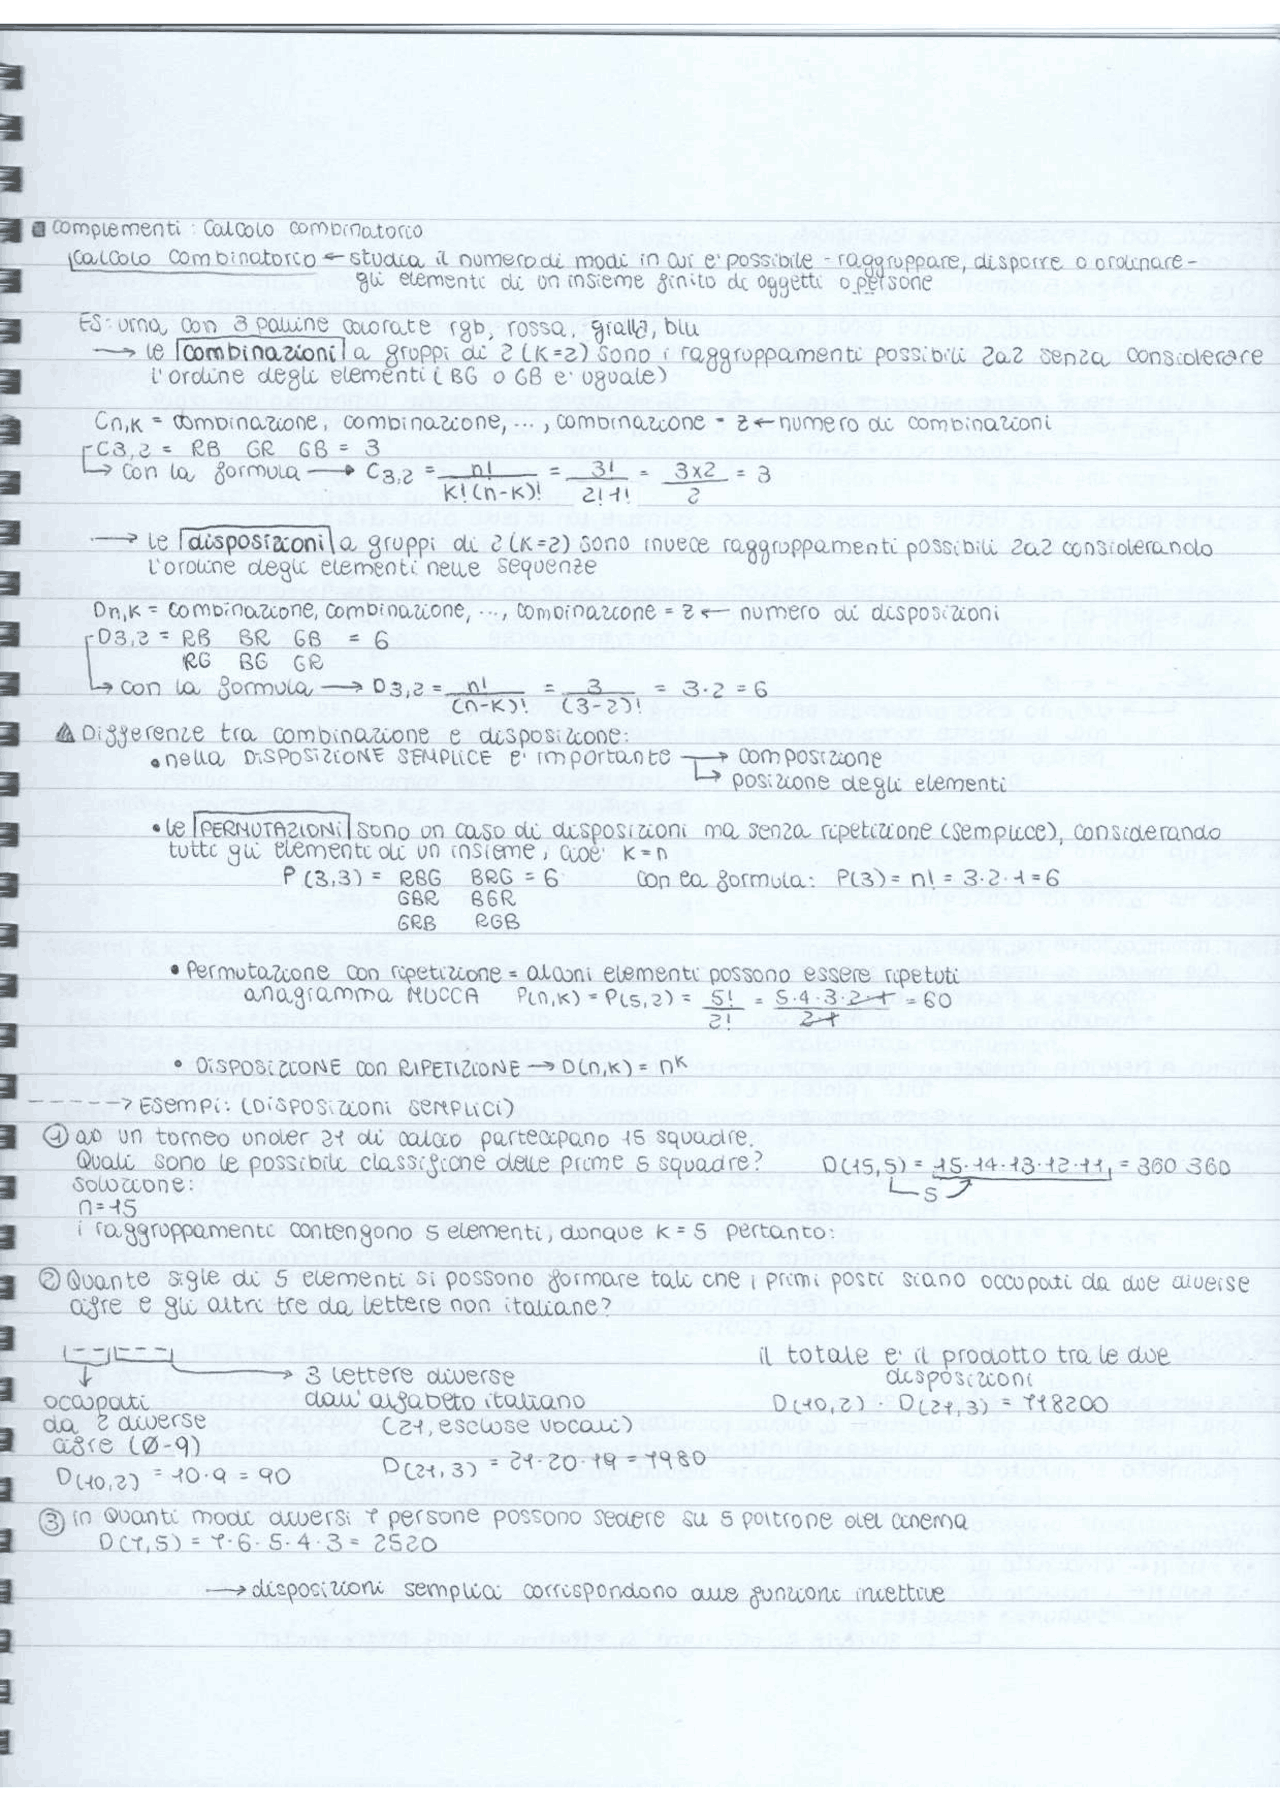 complementi: Calcolo combinatorio
Calcolo combinatorio ← studia il numero di modi in cui e' possibile - raggruppare, disporre o ordinare -
gli elementi di un insieme finito di oggetti o persone
ES: urna con 3 palline colorate rgb, rossa, gialla, blu
→ le combinazioni a gruppi di 2 (K=2) sono i raggruppamenti possibili 2a2 senza considerare
l'ordine degli elementi (BG o GB e' uguale)
Cn,K = combinazione, combinazione, ..., combinazione = z ← numero di combinazioni
C3,2 = RB GR GB = 3
→ con la formula → C3,2 = n!/K!(n-K)! = 3!/2!1! = 3x2/2 = 3
→ le disposizioni a gruppi di 2 (K=2) sono invece raggruppamenti possibili 2a2 considerando
l'ordine degli elementi nelle sequenze
Dn,K = combinazione, combinazione, ..., combinazione = z ← numero di disposizioni
D3,2 = RB BR GB = 6
RG BG GR
→ con la formula → D3,2 = n!/(n-K)! = 3/(3-2)! = 3·2 = 6
Differenze tra combinazione e disposizione:
• nella DISPOSIZIONE SEMPLICE e' importante → composizione
→ posizione degli elementi
• le PERMUTAZIONI sono un caso di disposizioni ma senza ripetizione (semplice), considerando
tutti gli elementi di un insieme, cioe' K=n
P(3,3) = RBG BRG = 6 con la formula: P(3) = n! = 3·2·1=6
GBR BGR
GRB RGB
• Permutazione con ripetizione = alcuni elementi possono essere ripetuti
anagramma MUCCA P(n,K) = P(5,2) = 5!/2! = 5·4·3·2·1/2·1 = 60
• DISPOSIZIONE con RIPETIZIONE → D(n,K) = n^K
------> Esempi: (Disposizioni semplici)
① ad un torneo under 21 di calcio partecipano 15 squadre.
Quali sono le possibili classifiche delle prime 5 squadre? D(15,5) = 15·14·13·12·11 = 360 360
soluzione: 5
n=15
i raggruppamenti contengono 5 elementi, dunque K=5 pertanto:
② Quante sigle di 5 elementi si possono formare tali che i primi posti siano occupati da due diverse
cifre e gli altri tre da lettere non italiane?
il totale e' il prodotto tra le due
→ 3 lettere diverse disposizioni
occupati dall'alfabeto italiano D(10,2) · D(21,3) = 718200
da 2 diverse (21, escluse vocali)
cifre (0-9)
D(10,2) = 10·9 = 90 D(21,3) = 21·20·19 = 7980
③ in Quanti modi diversi 7 persone possono sedere su 5 poltrone del cinema
D(7,5) = 7·6·5·4·3 = 2520
→ disposizioni semplici corrispondono alle funzioni iniettive